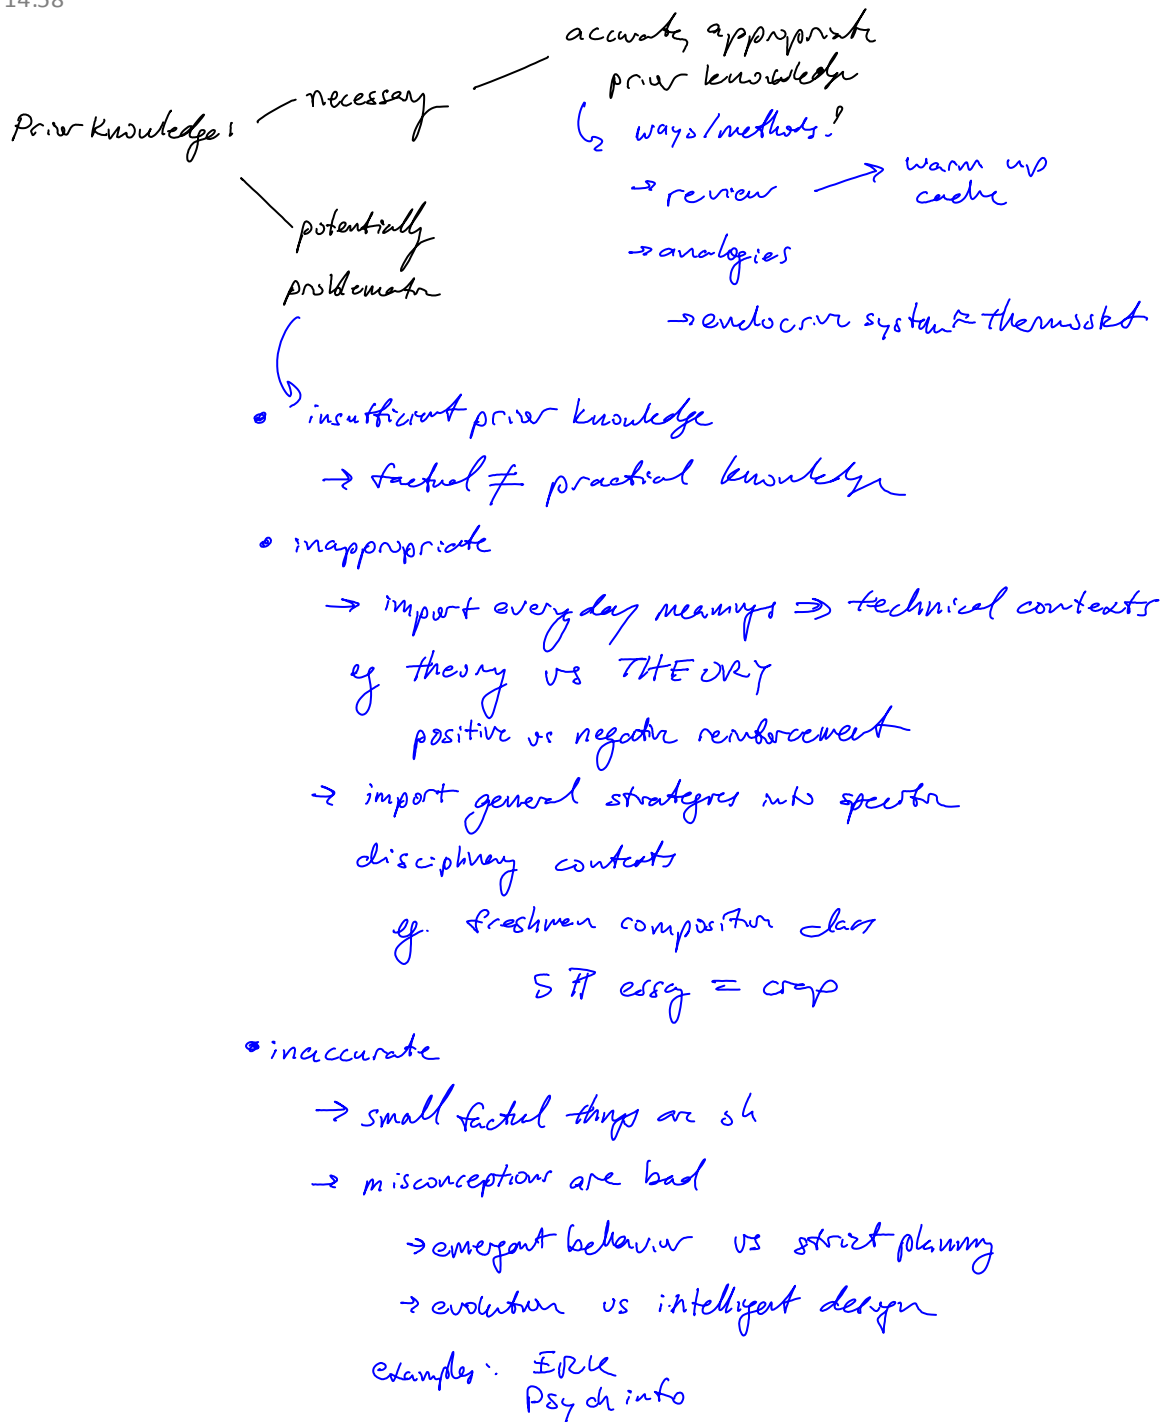 14:58
accurate, appropriate
prior knowledge
necessary
Prior Knowledge:
ways/methods?
→ review → warm up
cache
→ analogies
→ endocrine system ≈ thermostat
potentially
problematic
• insufficient prior knowledge
→ factual ≠ practical knowledge
• inappropriate
→ import everyday meanings ⇒ technical contexts
eg theory vs THEORY
positive vs negative reinforcement
→ import general strategies into specific
disciplinary contexts
eg. freshmen composition class
5 ¶ essay = crap
• inaccurate
→ small factual things are ok
→ misconceptions are bad
→ emergent behavior vs strict planning
→ evolution vs intelligent design
examples:
Psych info